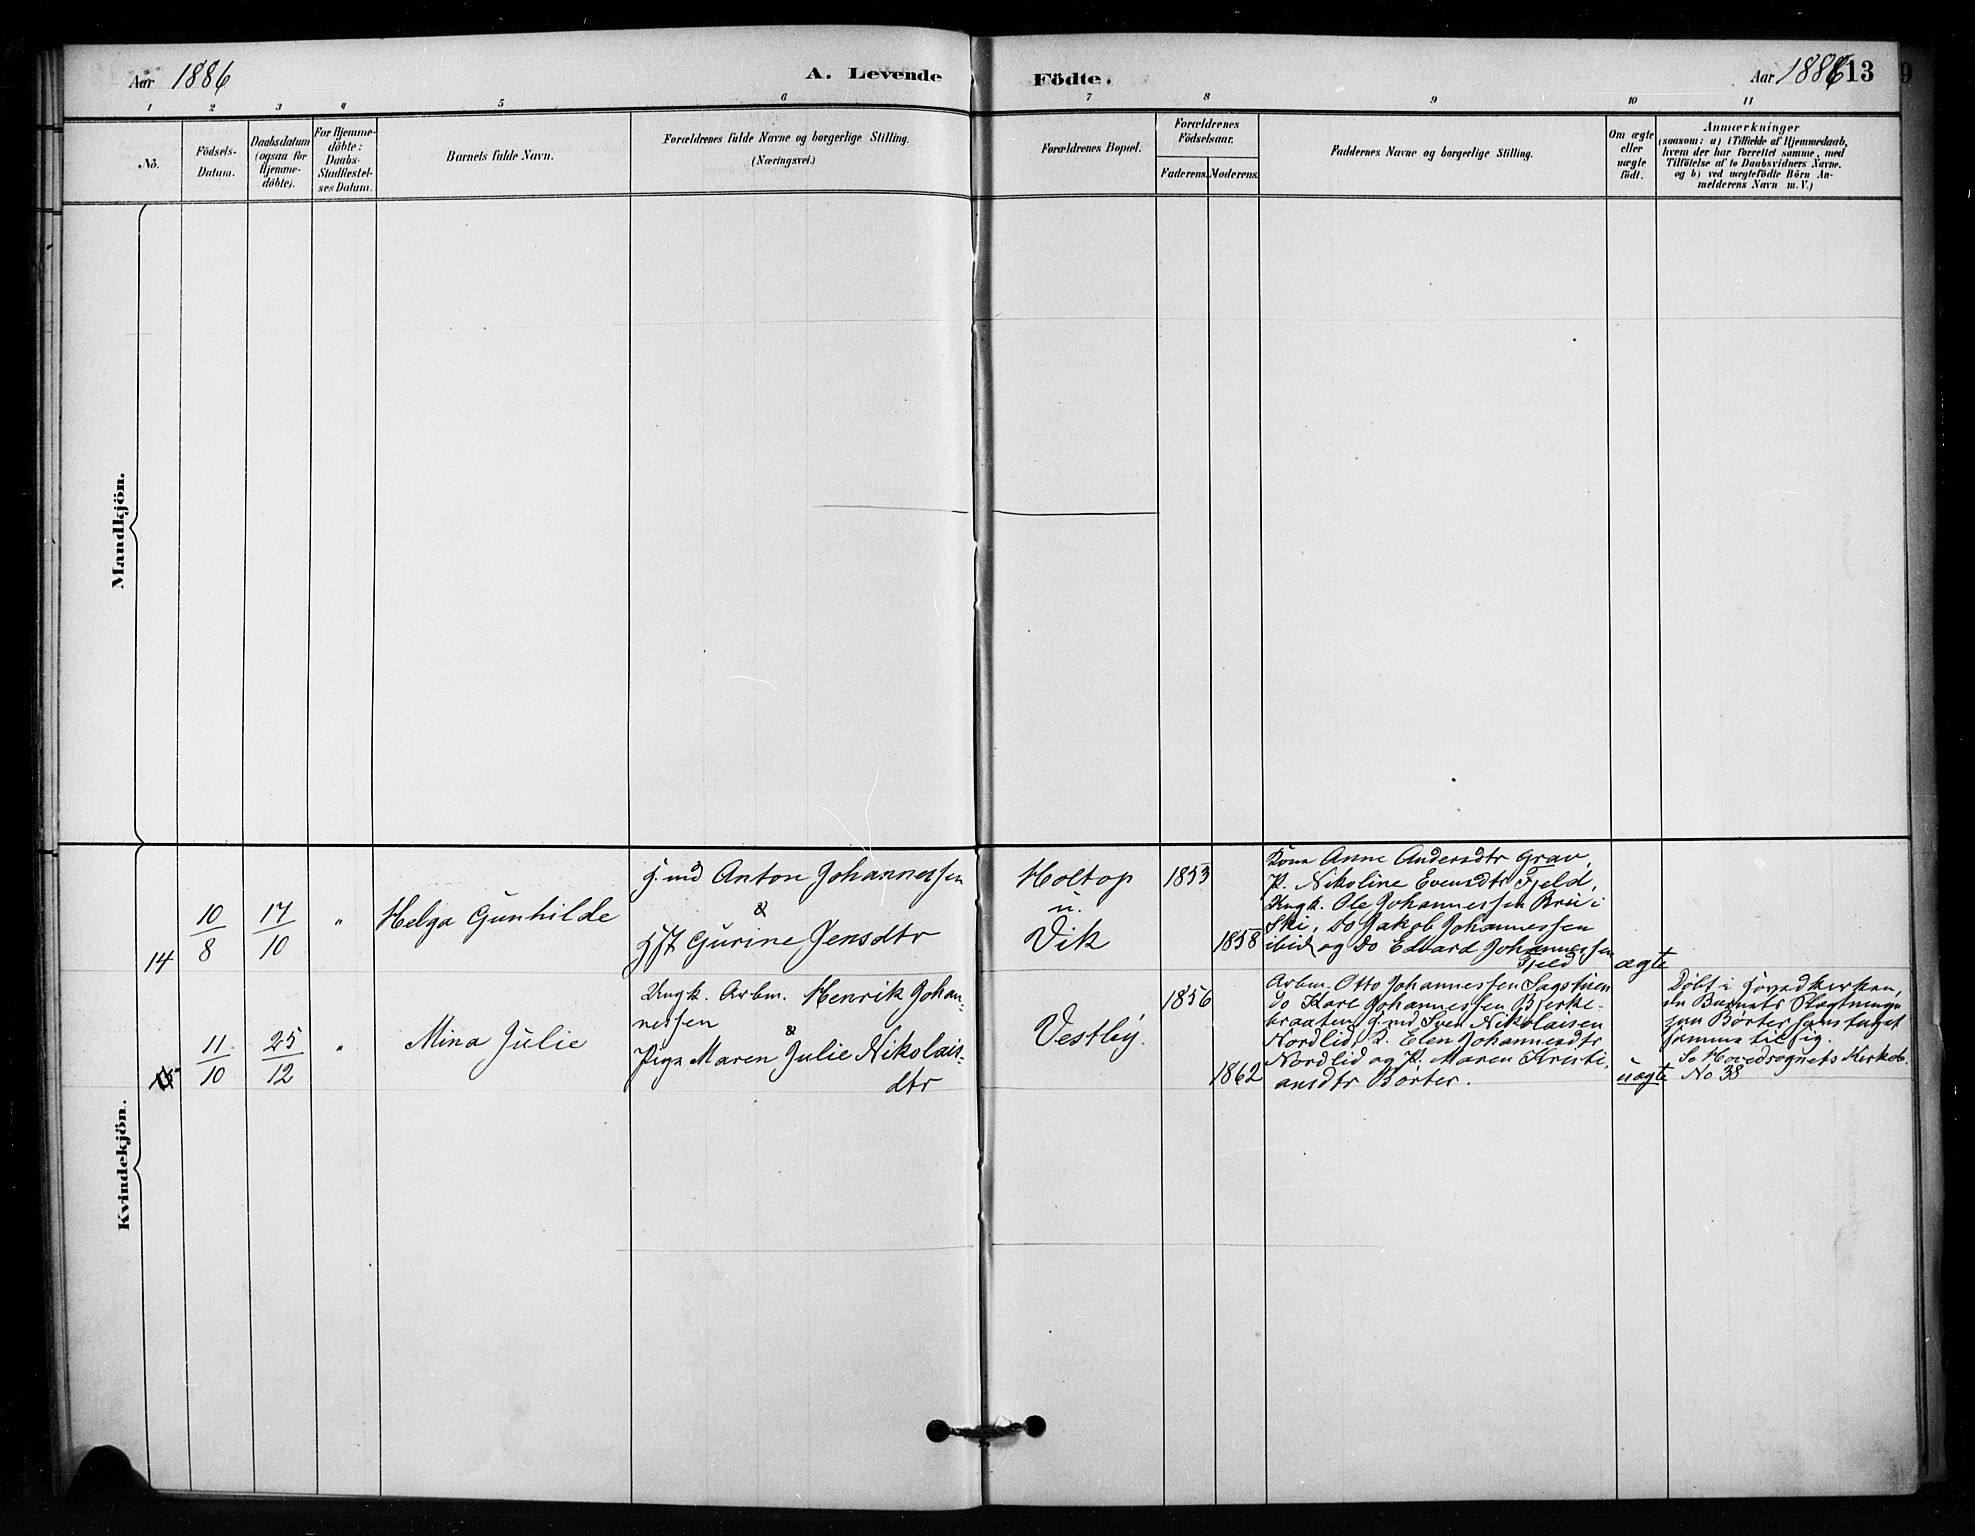 Aar 1886
A. Levende
Födte.
Aar 1886 13
9
1 2 3 4 5 6 7 8 9 10 11
No.
Födsels-
Datum.
Daabsdatum
(ogsaa for
Hjemme-
döbte).
For Hjemme-
döbte:
Daabs-
Stadfæstel-
ses Datum.
Barnets fulde Navn.
Forældrenes fulde Navne og borgerlige Stilling.
(Næringsvei.)
Forældrenes Bopæl.
Forældrenes
Födselsaar.
Faderens. Moderens.
Faddernes Navne og borgerlige Stilling.
Om ægte
eller
uægte
födt.
Anmærkninger
(saasom: a) i Tilfælde af Hjemmedaab,
hvem der har forrettet samme, med
Tilföielse af to Daabsvidners Navne.
og b) ved uægtefödte Börn An-
melderens Navn m. V.)
Mandkjön.
Kvindekjön.
14
10/8
17/10
"
Helga Gunhilde
G.md Anton Johannessen
&
Gurine Jensdtr
Holtop
u.
Vik
1853
1858
Kone Anne Andersdtr Grav,
P. Nikoline Evensdtr Fjeld,
Ungk. Ole Johannessen Bru i
Ski, Do Jakob Johannessen
ibid og Do Edvard Johannessen
Fjeld
ægte
15
11/10
25/12
"
Mina Julie
Ungk. Arbm. Henrik Johan-
nessen
&
Pige Maren Julie Nikolais-
dtr
Vestby.
1856
1862
Arbm. Otto Johannessen Sagstuen
Do Karl Johannessen Bjerke-
braaten, G.md Sven Nikolaisen
Nordlid, P. Elen Johannesdtr
Nordlid og P. Maren Kristi-
ansdtr Börter.
uægte
Döbt i Hovedkirken,
da Barnets Slægtninge
paa Börter har taget
samme til sig.
Se Hovedsognets Kirkeb.
No 38